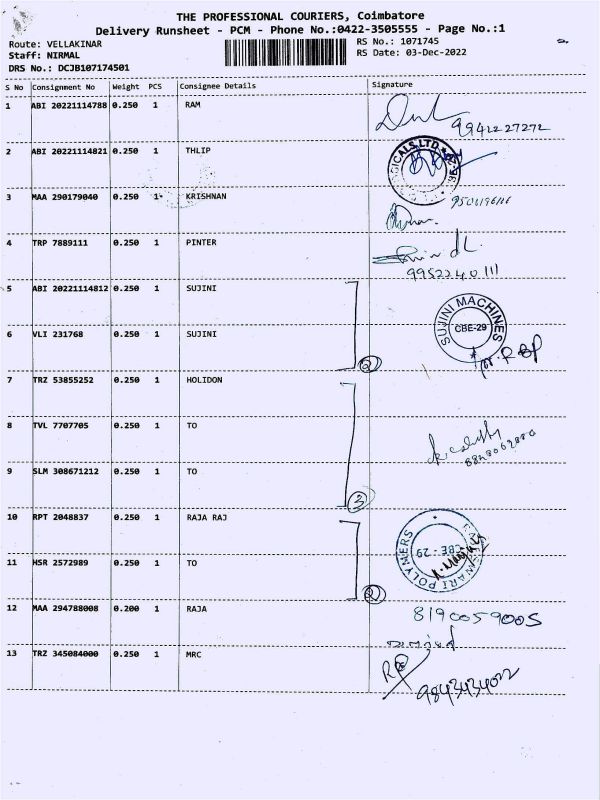 THE PROFESSIONAL COURIERS, Coimbatore
Delivery Runsheet - PCM - Phone No.:0422-3505555 - Page No.:1
Route: VELLAKINAR
Staff: NIRMAL
DRS No.: DCJB107174501
RS No.: 1071745
RS Date: 03-Dec-2022
S No Consignment No Weight PCS Consignee Details Signature
1 ABI 20221114788 0.250 1 RAM
9942227272
2 ABI 20221114821 0.250 1 THLIP
3 MAA 290179040 0.250 1 KRISHNAN
4 TRP 7889111 0.250 1 PINTER
9952240111
5 ABI 20221114812 0.250 1 SUJINI
SUJINI MACHINES
CBE-29
6 VLI 231768 0.250 1 SUJINI
2
7 TRZ 53855252 0.250 1 HOLIDON
8 TVL 7707705 0.250 1 TO
9 SLM 308671212 0.250 1 TO
3
10 RPT 2048837 0.250 1 RAJA RAJ
POLYMERS
CBE - 29
11 HSR 2572989 0.250 1 TO
2
12 MAA 294788008 0.200 1 RAJA
8190059005
13 TRZ 345084000 0.250 1 MRC
9843434022